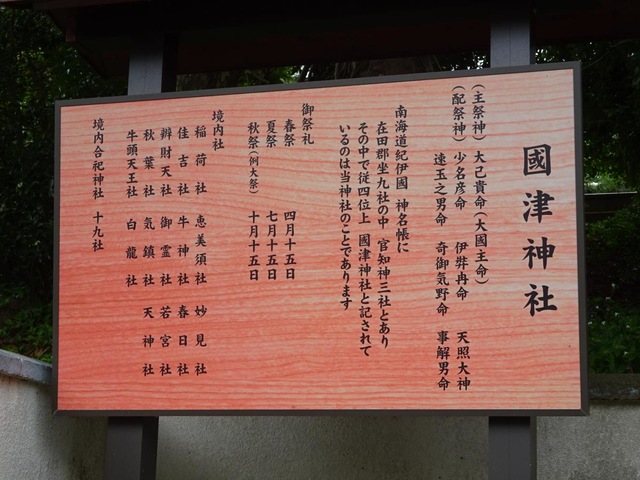 國津神社
(主祭神) 大己貴命(大國主命)
(配祭神) 少名彦命 伊弉冉命 天照大神
速玉之男命 奇御気野命 事解男命
南海道紀伊國 神名帳に
在田郡坐九社の中 官知神三社とあり
その中で従四位上 國津神社と記されて
いるのは当神社のことであります
御祭礼
春祭 四月十五日
夏祭 七月十五日
秋祭(例大祭) 十月十五日
境内社
稲荷社 恵美須社 妙見社
佳吉社 牛神社 春日社
辧財天社 御霊社 若宮社
秋葉社 気鎮社 天神社
牛頭天王社 白龍社
境内合祀神社 十九社